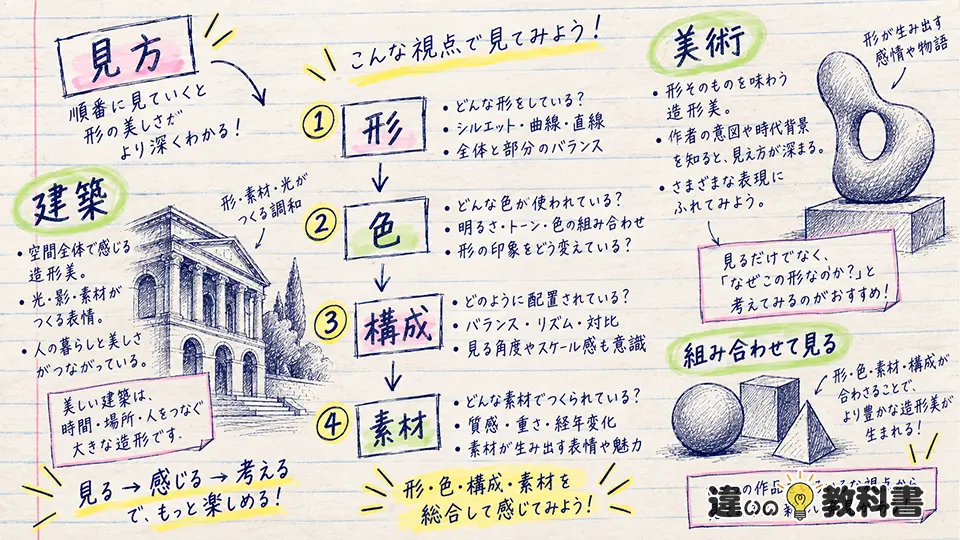 見方
順番に見ていくと
形の美しさが
より深くわかる!
こんな視点で見てみよう!
① 形
• どんな形をしている?
• シルエット・曲線・直線
• 全体と部分のバランス
② 色
• どんな色が使われている?
• 明るさ・トーン・色の組み合わせ
• 形の印象をどう変えている?
③ 構成
• どのように配置されている?
• バランス・リズム・対比
• 見る角度やスケール感も意識
④ 素材
• どんな素材でつくられている?
• 質感・重さ・経年変化
• 素材が生み出す表情や魅力
形・色・構成・素材を
総合して感じてみよう!
建築
形・素材・光が
つくる調和
• 空間全体で感じる
造形美。
• 光・影・素材が
つくる表情。
• 人の暮らしと美しさ
がつながっている。
美しい建築は、
時間・場所・人をつなぐ
大きな造形です.
見る→感じる→考える
で、もっと楽しめる!
美術
形が生み出す
感情や物語
• 形そのものを味わう
造形美。
• 作者の意図や時代背景
を知ると、見え方が深まる。
• さまざまな表現に
ふれてみよう。
見るだけでなく、
「なぜこの形なのか?」と
考えてみるのがおすすめ!
組み合わせて見る
形・色・素材・構成が
合わさることで、
より豊かな造形美が
生まれる!
の作品
視点から
違いの教科書